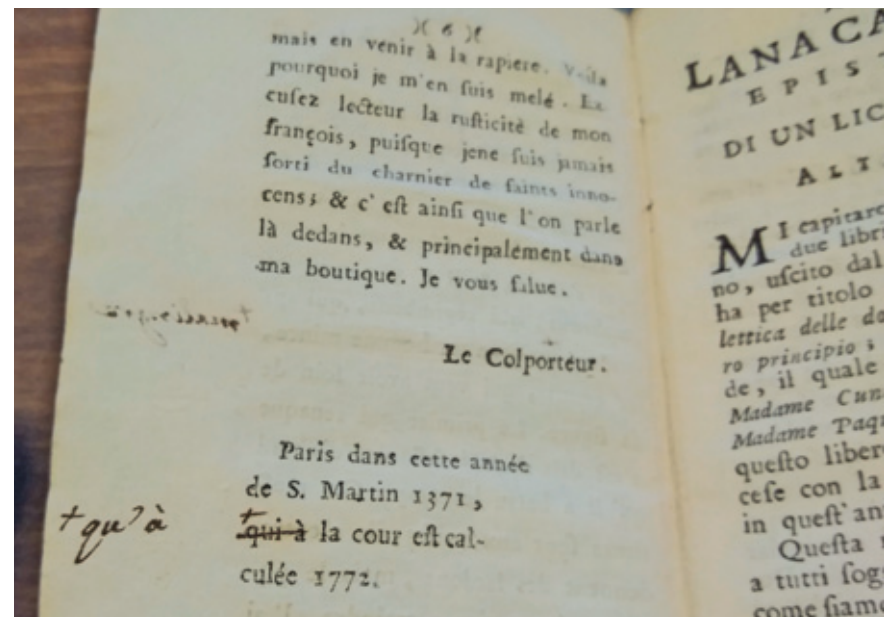 )( 6 )(
mais en venir à la rapiere. Voila
pourquoi je m'en suis melé. Ex-
cusez lećteur la rusticitè de mon
françois, puisque jene suis jamais
sorti du charnier de saints inno-
cens; & c' est ainsi que l'on parle
là dedans, & principalement dans
ma boutique. Je vous salue.
Le Colporteur.
Paris dans cette année
de S. Martin 1371,
+
qui à la cour est cal-
culée 1772.
+ qu'à
LANACA
EPIST
DI UN LIC
ALT
MI capitare
due libri
no, uscito dal
ha per titolo
lettica delle do
ro principio;
de, il quale
Madame Cun
Madame Paqu
questo liber
cese con la
in quest' an
Questa
a tutti sogg
come siamo